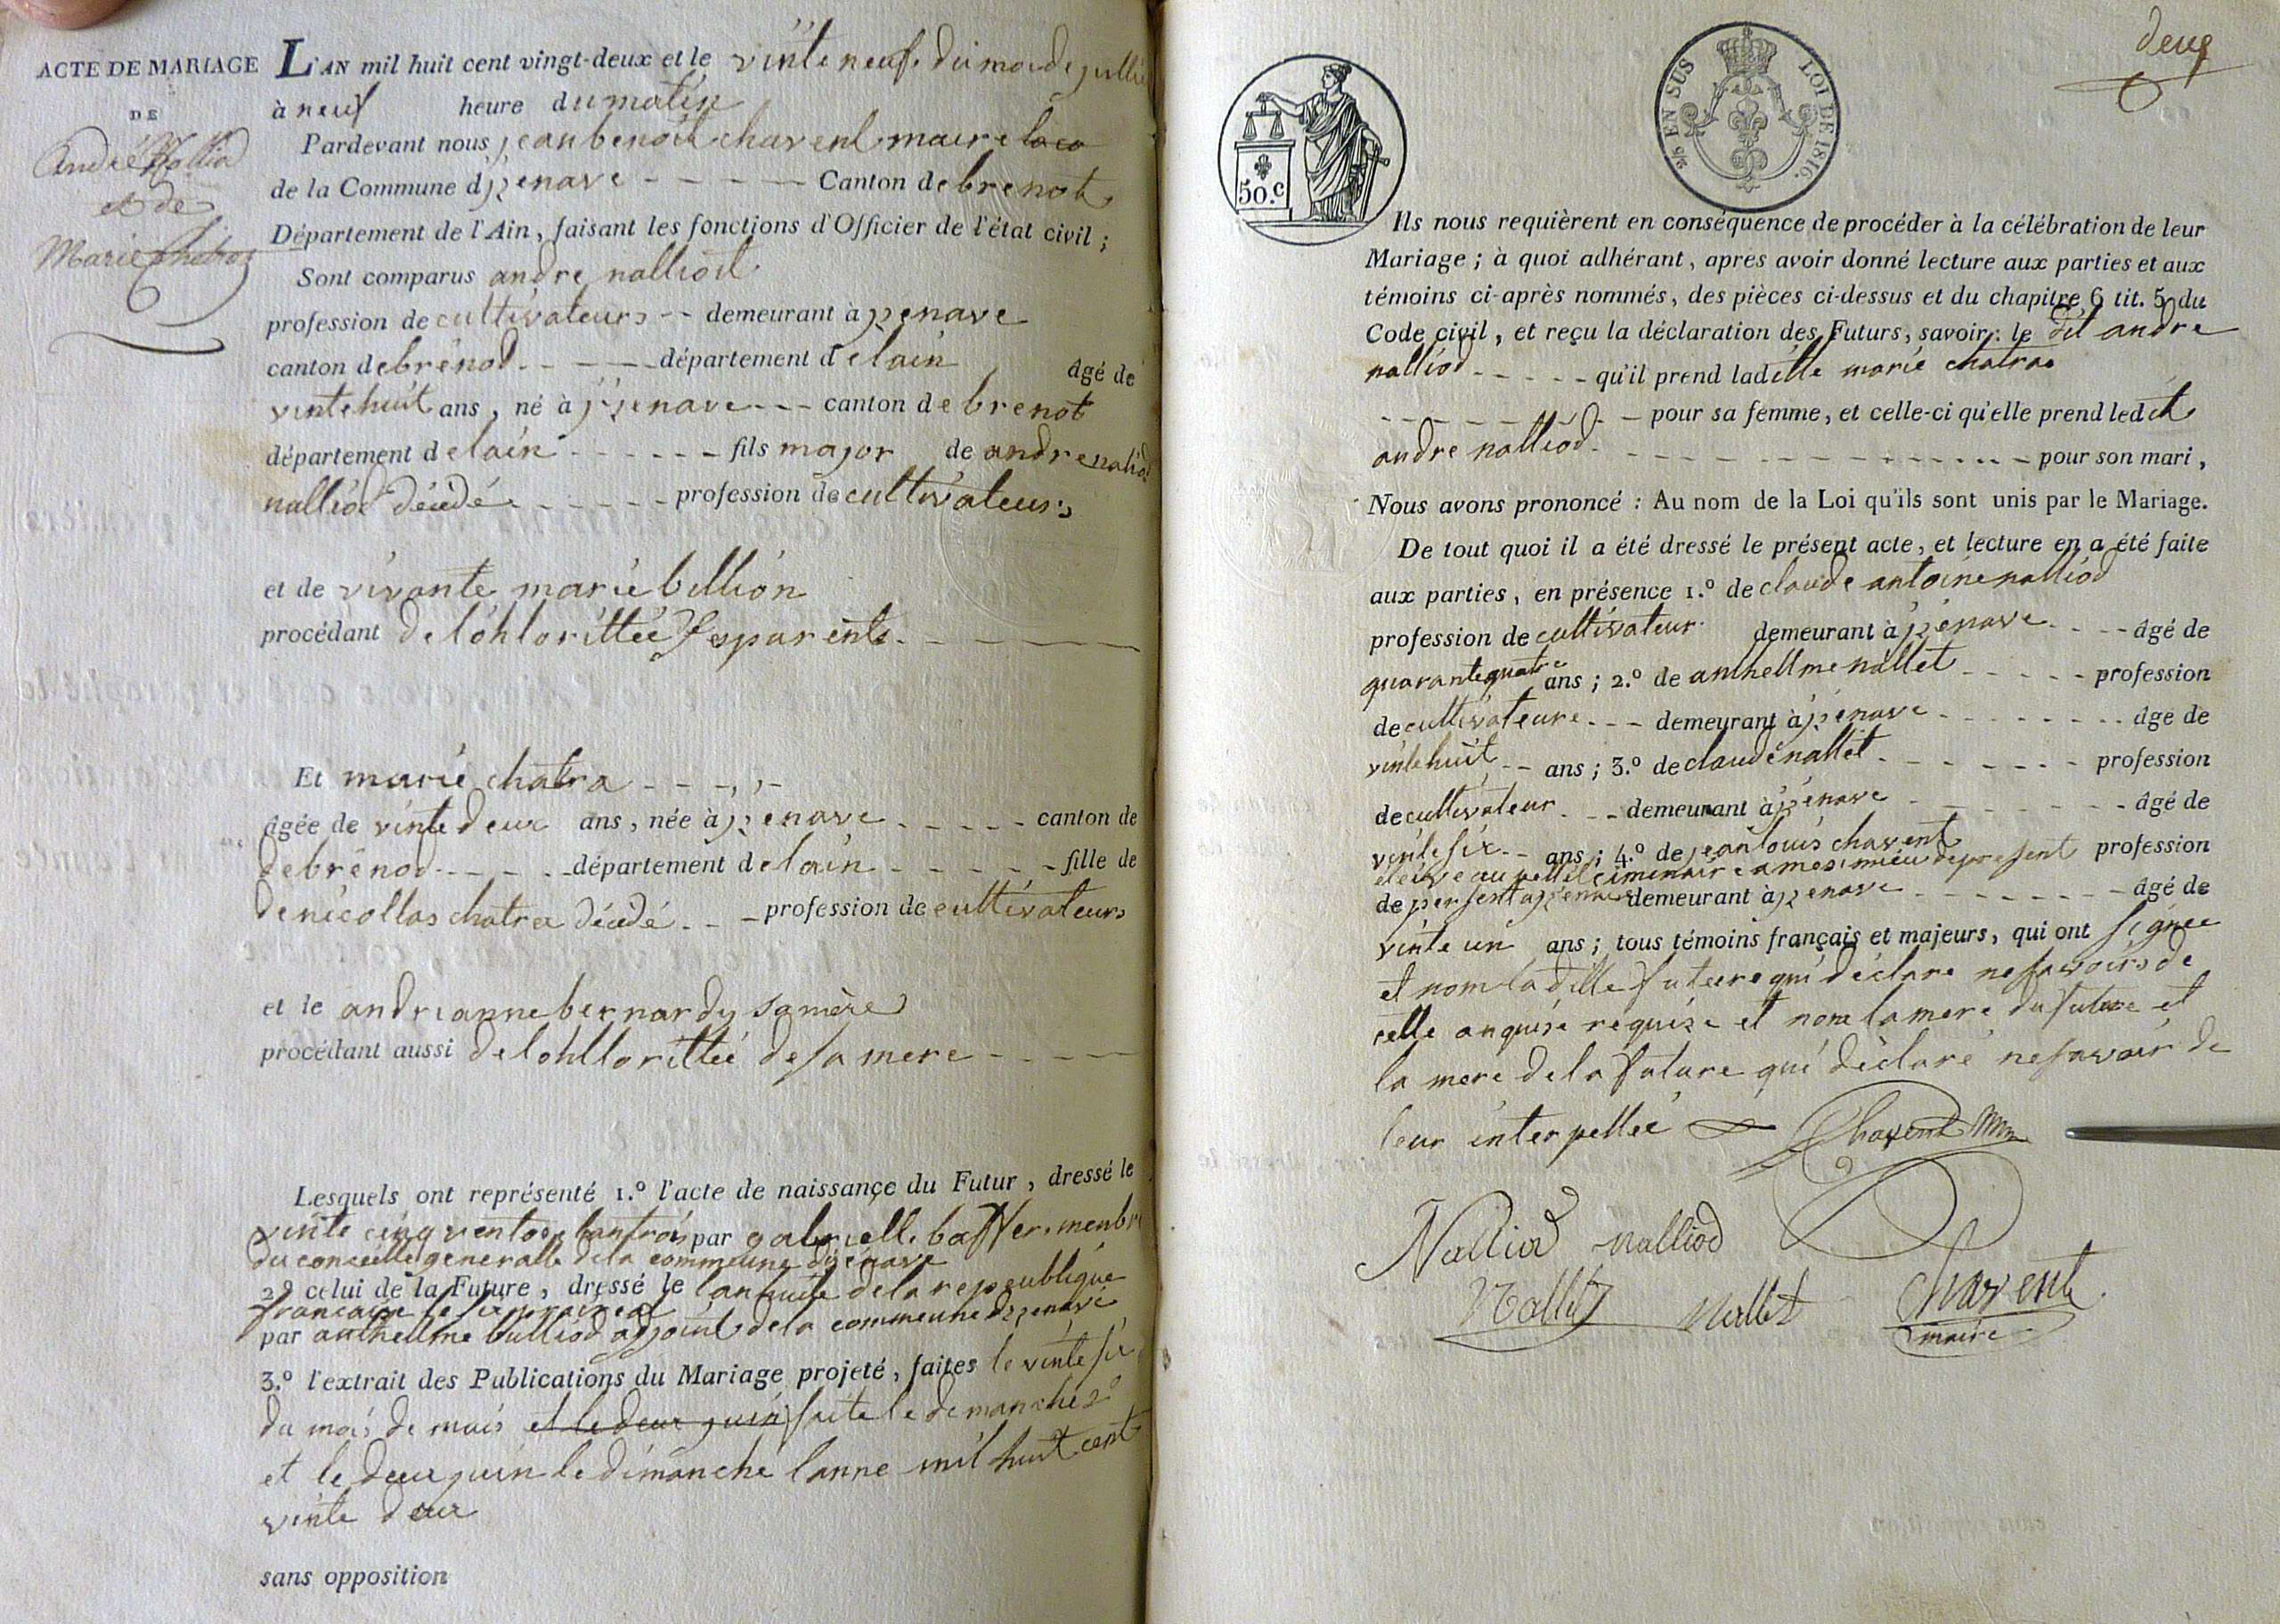 ACTE DE MARIAGE
DE
André Nalliod
et de
Marie Chatraz
L'AN mil huit cent vingt-deux et le vinte neuf du moi de jullie
à neuf heure du matin
Pardevant nous jean benoit chavent maire
de la Commune d'izenave Canton de brenot
Département de l'Ain, faisant les fonctions d'Officier de l'état civil ;
Sont comparus andre nalliod
profession de cultivateurs demeurant à izenave
canton de brénod département de lain âgé de
vinte huit ans, né à izenave canton de brenot
département de lain fils major de andre naliod
nalliod décédé profession de cultivateurs
et de vivante marie billion
procédant de lohtorittée de ses parents
Et marie chatra
âgée de vinte deux ans, née à izenave canton de
de brénod département de lain fille de
de nicollas chatra décédé profession de cultivateurs
et le andrianne bernardy sa mère
procédant aussi de lohttorittée de sa mere
Lesquels ont représenté 1.º l'acte de naissance du Futur, dressé le
vinte cinq par gabrielle baffer menbre
du conceille generalle de la commeune dizenave
2.º celui de la Future, dressé le lan huite de la republique
francaise le six praireal
par anthellme bulliod adjoint de la commeune dizenave
3.º l'extrait des Publications du Mariage projeté, faites le vinte six
du mois de mais et le deux juin faite le demanche 2º
et le deux juin le dimanche lanne mil huit cent
vinte deux
sans opposition
deux
50.c
2/5 EN SUS LOI DE 1816.
Ils nous requièrent en conséquence de procéder à la célébration de leur
Mariage ; à quoi adhérant, apres avoir donné lecture aux parties et aux
témoins ci-après nommés, des pièces ci-dessus et du chapitre 6 tit. 5 du
Code civil, et reçu la déclaration des Futurs, savoir : le dit andre
nalliod qu'il prend laditte marie chatra
pour sa femme, et celle-ci qu'elle prend ledit
andre nalliod pour son mari,
Nous avons prononcé : Au nom de la Loi qu'ils sont unis par le Mariage.
De tout quoi il a été dressé le présent acte, et lecture en a été faite
aux parties, en présence 1.º de claude antoine nalliod
profession de cultivateur demeurant à izenave âgé de
quarante quatre ans ; 2.º de anthellme nallet profession
de cultivateure demeurant à izenave âge de
vinte huit ans ; 3.º de claude nallet profession
de cultivateur demeurant à izenave âgé de
vinte six ans ; 4.º de jean louis chavent profession
eleive au petit ciminaire a mesimieu de present
de persent a izenave demeurant à izenave âgé de
vinte un ans ; tous témoins français et majeurs, qui ont signée
et nom la ditte future qui déclare ne savoirs de
celle anquise requise et nom la mere du future et
la mere de la future qui déclaré ne savoir de
leur interpellée Chavent
Nalliod nalliod
Nallet Nallet Chavent
maire